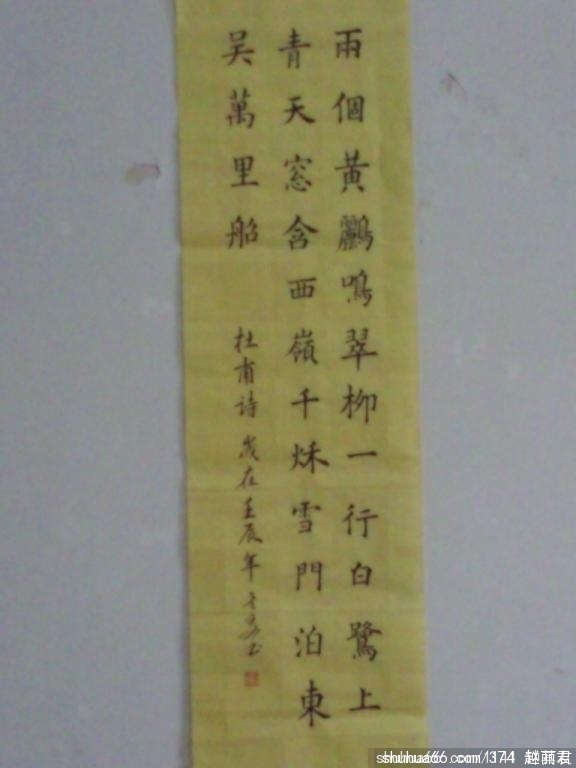 兩個黃鸝鳴翠柳一行白鷺上
青天窓含西嶺千秌雪門泊東
吴萬里船
杜甫诗 歲在壬辰年
shuhua666.com/1374 趙萳君